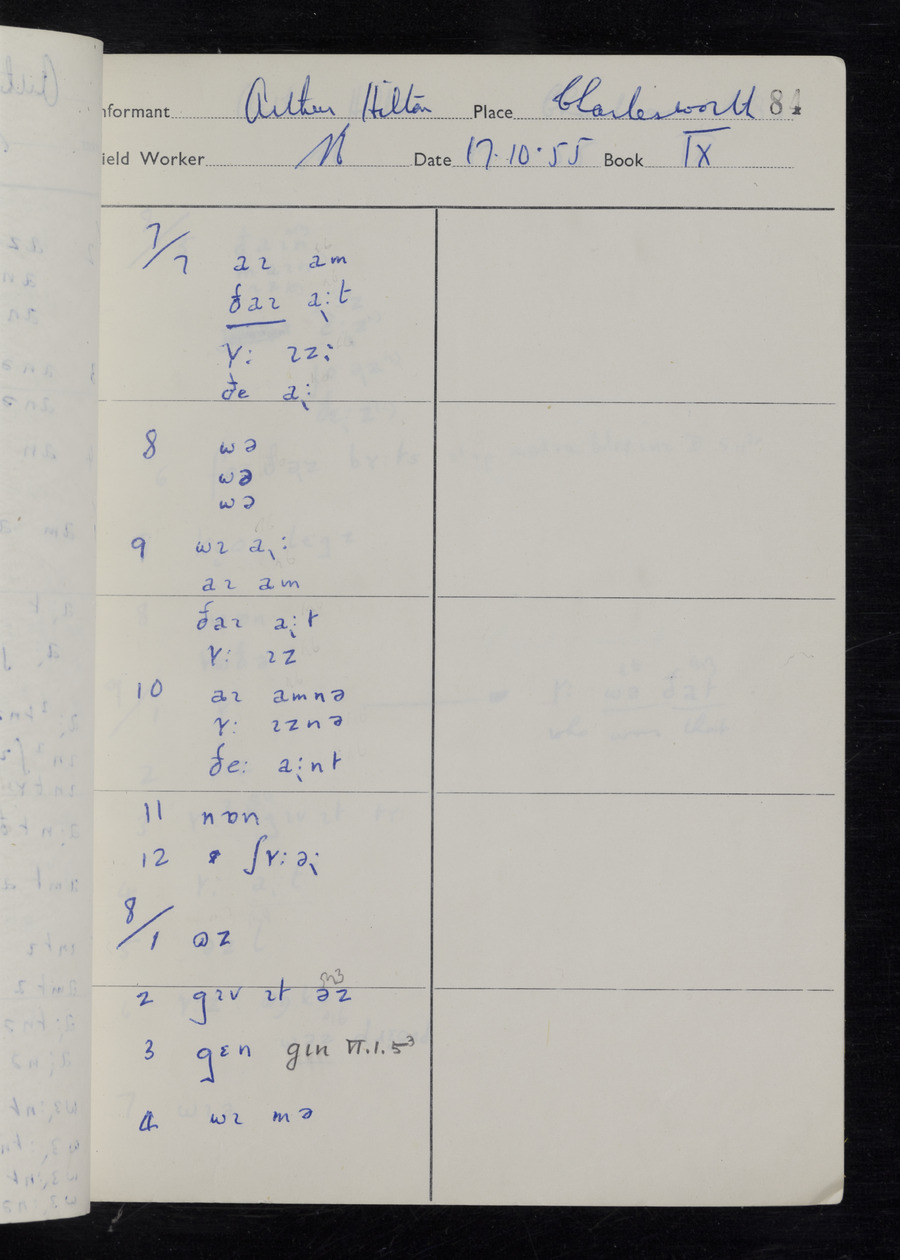 Informant Arthur Hilton Place Charlesworth 84
Field Worker Date 17.10.55 Book IX
7/7 aɪ am
ðaɪ a̘ːt
ɣː ɪzː
ðe a̘ː
8 wə
wə
wə
9 wɪ a̘ː
aɪ am
ðaɪ a̘ːt
ɣː ɪz
10 aɪ amnə
ɣː ɪznə
ðeː a̘ːnt
11 nɒn
12 ʃɣːə̘ː
8/1 ɒz
2 gɪv ɪt əz
3 gɛn gɪn VI.1.5³
4 wɪ mə